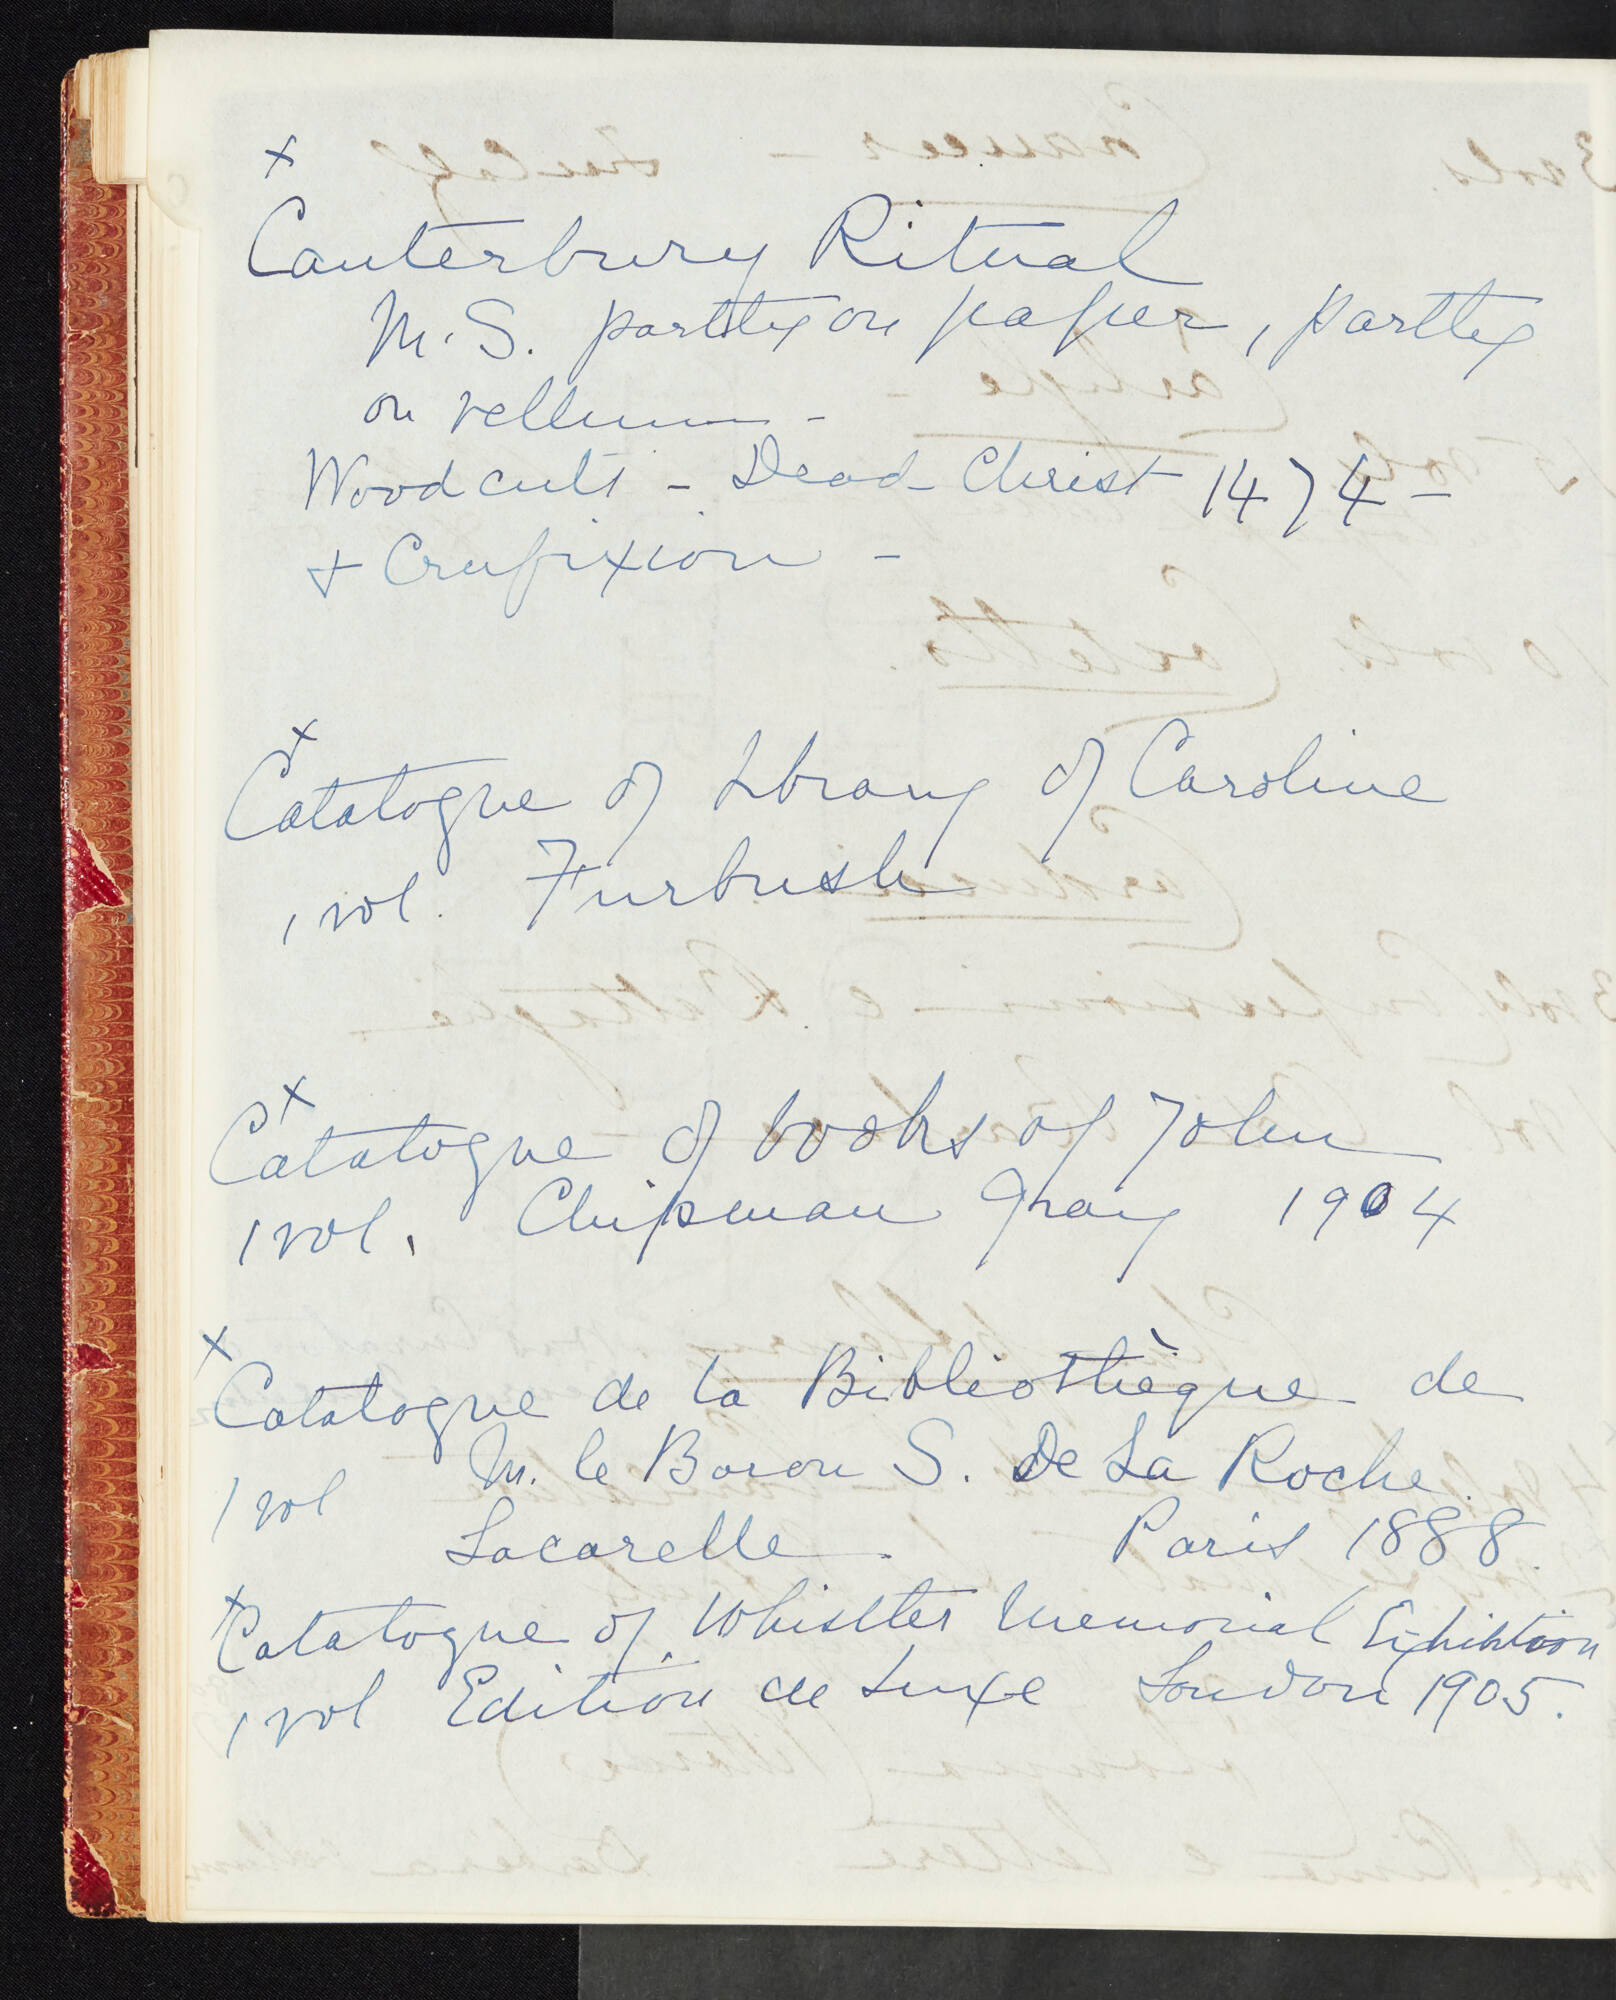 x
Canterbury Ritual
M.S. partly on paper, partly
on vellum -
Woodcuts - Dead Christ 1474 -
+ Crufixion -
x
Catalogue of Library of Caroline
1 vol. Furbush
x
Catalogue of books of John
1 vol. Chipman Gray 1904
x
Catalogue de la Bibliothèque de
M. le Baron S. De La Roche
1 vol
Lacarelle. Paris 1888.
x
Catalogue of Whistler Memorial Exhibition
1 vol Edition de Luxe London 1905.